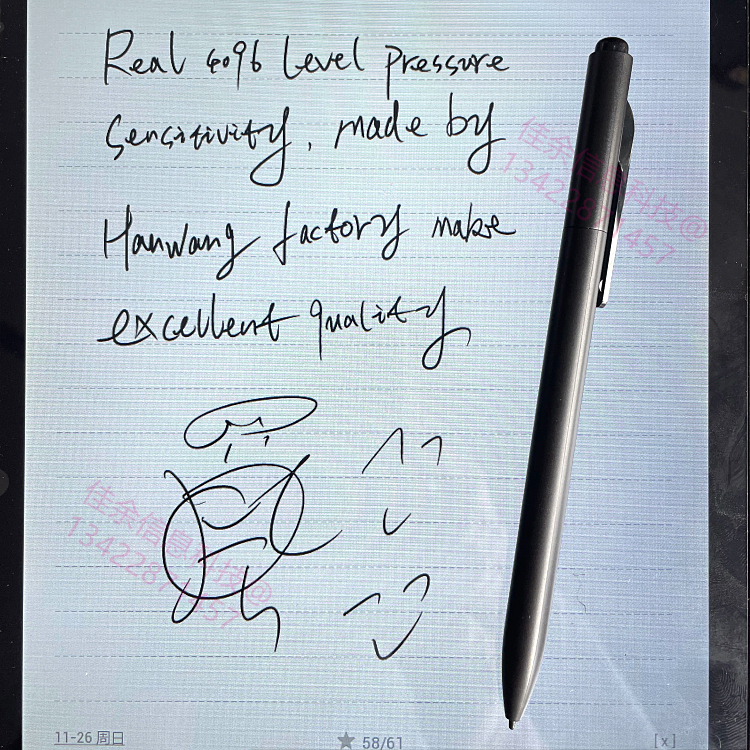 Real 4096 level pressure
Sensitivity, made by
Hanwang factory make
excellent quality
佳余信息科技@
13422871457
佳余信息科技@
13422871457
11-26 周日
★ 58/61
[x]